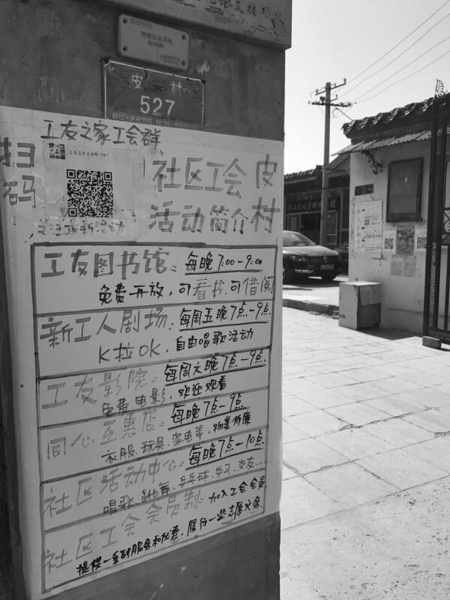 皮村
527
工友之家工会群
扫码
社区工会 皮
活动简介 村
关注最新活动
工友图书馆：每晚7:00-9:00
免费开放，可看书，可借阅
新工人剧场：每周五晚7点-9点
K拉OK，自由唱歌活动
工友影院：每周六晚7点-9点
免费电影，欢迎观看
同心互惠店：每晚7点-9点
衣服、玩具、家电等，物美价廉
社区活动中心：每晚7点-10点
唱歌、跳舞、乒乓球、学习、交友……
社区工会会员制：加入工会会员
提供一系列服务和优惠，履行一些志愿义务